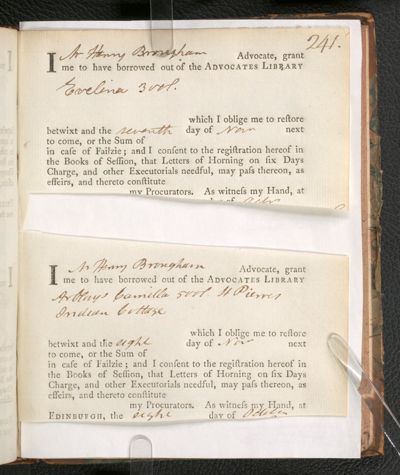 241.
I Mr Henry Brougham Advocate, grant
me to have borrowed out of the ADVOCATES LIBRARY
Evelina 3 vol.
which I oblige me to reſtore
betwixt and the seventh day of Nov next
to come, or the Sum of
in caſe of Failzie; and I conſent to the regiſtration hereof in
the Books of Seſſion, that Letters of Horning on ſix Days
Charge, and other Executorials needful, may paſs thereon, as
effeirs, and thereto conſtitute
my Procurators. As witneſs my Hand, at
I Mr Henry Brougham Advocate, grant
me to have borrowed out of the ADVOCATES LIBRARY
Camilla 5 vol. St Pierres
Indian Cottage
which I oblige me to reſtore
betwixt and the eight day of Nov next
to come, or the Sum of
in caſe of Failzie; and I conſent to the regiſtration hereof in
the Books of Seſſion, that Letters of Horning on ſix Days
Charge, and other Executorials needful, may paſs thereon, as
effeirs, and thereto conſtitute
my Procurators. As witneſs my Hand, at
EDINBURGH, the eight day of October